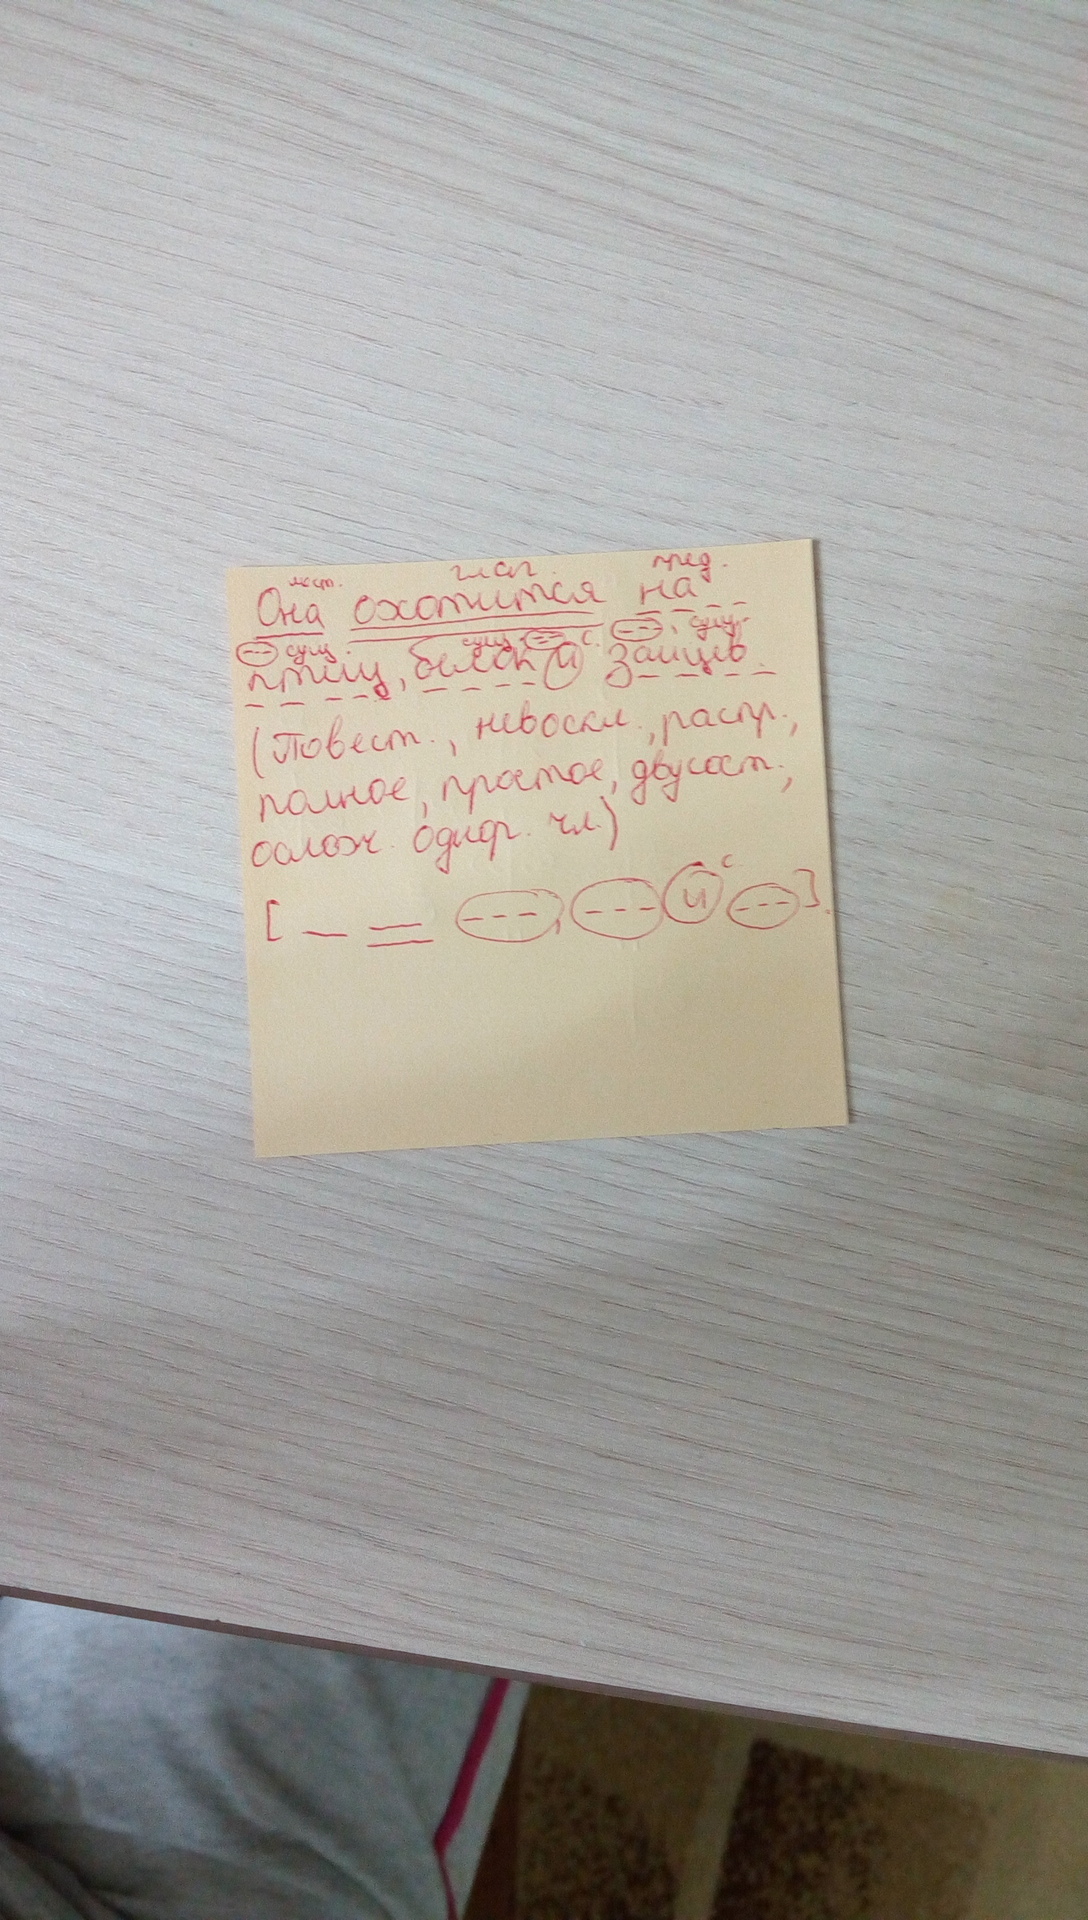 мест. глаг. пред.
Она охотится на
сущ. сущ. с. сущ.
птиц, белок и зайцев.
(Повест., невоскл., распр.,
полное, простое, двусост.,
ослож. однор. чл.)
[ — = (---), (---) (и) с (---)].